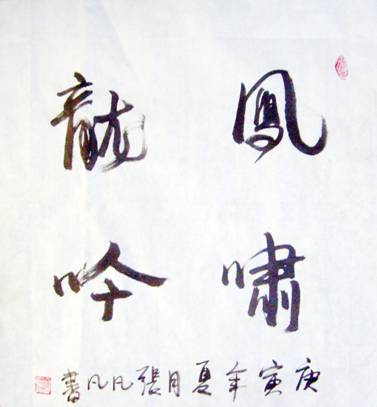 鳳嘯
龍吟
庚寅年夏月張凡凡書